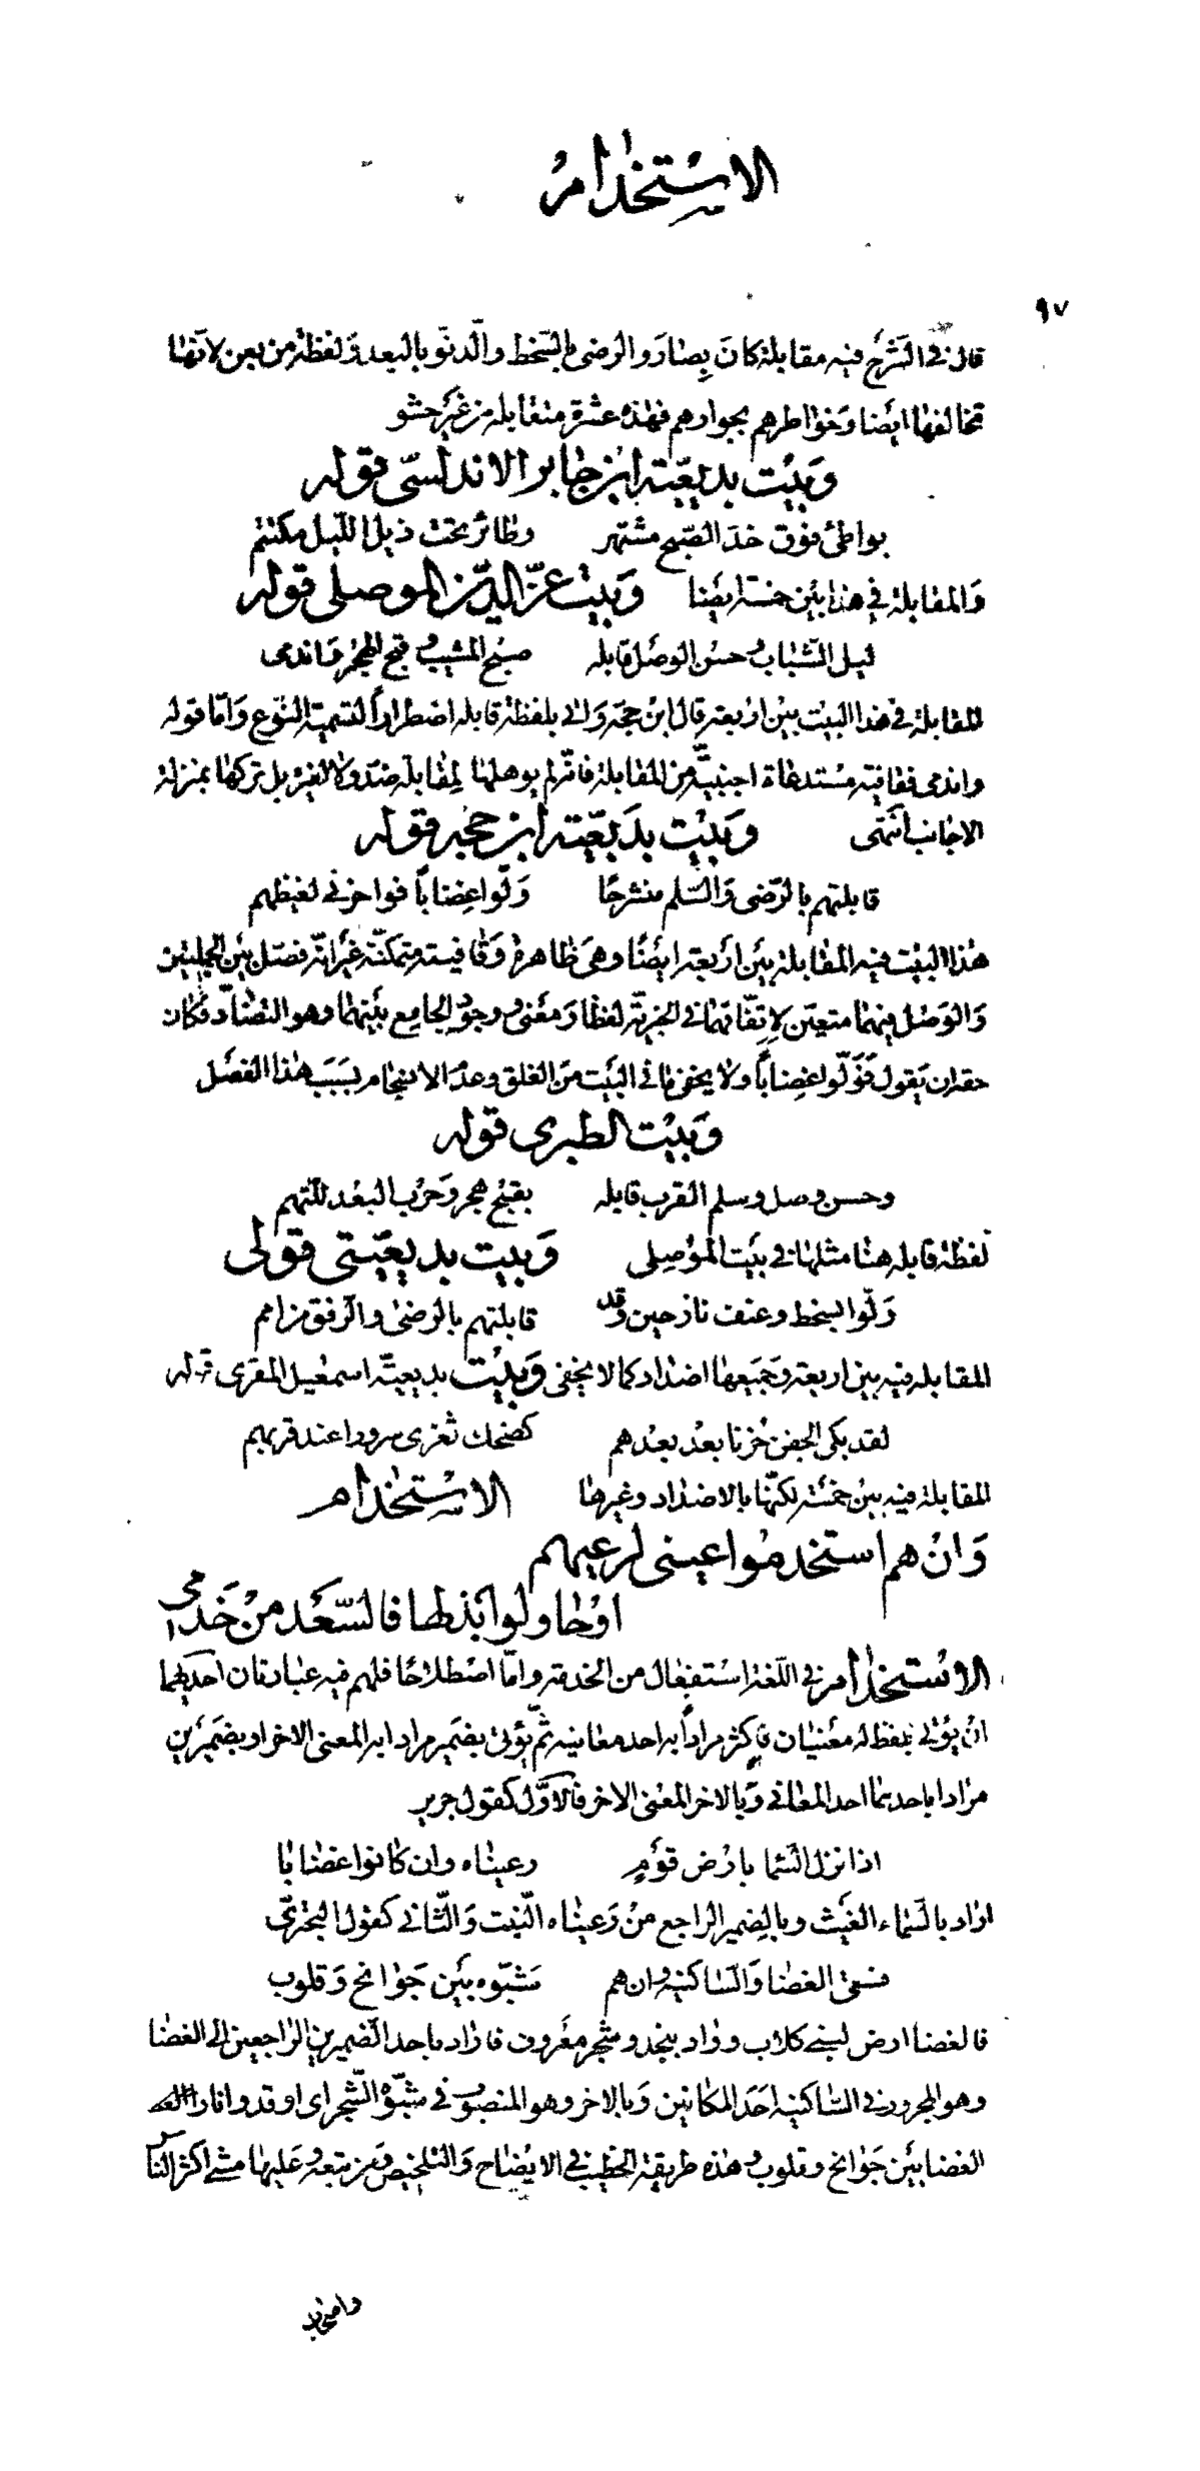 الاستخدام
٩٧
قال في الشرح فيه مقابلة كان بصار والرضى بالسخط والدنو بالبعد ولفظة من بعن لانها
تخالفها ايضا وخواطرهم بجوارهم فهذه عشرة متقابله من غير حشو
وبيت بديعية ابن جابر الاندلسي قوله
بواطئ فوق خد الصبح مشتهر وطائر تحت ذيل الليل مكتتم
والمقابلة في هذا بين خمسة ايضا وبيت عز الدين الموصلي قوله
ليل الشباب وحسن الوصل قابله صبح المشيب وقبح الهجر واندمى
المقابلة في هذا البيت بين اربعة قال ابن حجة واتى بلفظة قابله اضطراراً لتسمية النوع واما قوله
واندمى فقافيته مستدعاة اجنبية من المقابلة فانه لم يوهلها لمقابلة ضد ولا لغيره بل تركها بمنزلة
الاجانب انتهى وبيت بديعية ابن حجة قوله
قابلتهم بالرضى والسلم منشرحا ولوا غضاباً فواحزني لغيظهم
هذا البيت فيه المقابلة بين اربعة ايضًا وهي ظاهرة وقافيته متمكنة غير انه فصل بين الجملتين
والوصل بينهما متعين لاتفاقهما في الخبرية لفظا ومعنى ووجود الجامع بينهما وهو التضاد فكان
حقه ان يقول فولوا غضاباً ولا يخفى ما في البيت من القلق وعدم الانسجام بسبب هذا الفصل
وبيت الطبري قوله
وحسن وصل وسلم القرب قابله بقبح هجر وحرب البعد للتهم
لفظة قابله هنا مثلها في بيت الموصلى وبيت بديعيتي قولى
ولوا بسخط وعنف نازحين وقد قابلتهم بالرضى والرفق من امم
المقابله فيه بين اربعة وجميعها اضداد كما لا يخفى وبيت بديعية اسمعيل المقرى قوله
لقد بكى الجفن حزنا بعد بعدهم كضحك ثغرى سرورا عند قربهم
المقابلة فيه بين خمسة لكنها بالاضداد وغيرها الاستخدام
وان هم استخدموا عيني لرعيهم
او حاولوا بذلها فالسعد من خدمي
الاستخدام في اللغة استفعال من الخدمة واما اصطلاحًا فلهم فيه عبارتان احديهما
ان يؤتى بلفظ له معنيان فاكثر مراداً به احد معانيه ثم يؤتى بضمير مرادا به المعنى الاخر او بضميرين
مرادا باحدهما احد المعاني وبالاخر المعنى الاخر فالاول كقول جرير
اذا نزل السما بارض قوم رعيناه وان كانوا غضابا
اراد بالسماء الغيث وبالضمير الراجع من رعيناه النبت والثاني كقول البحتري
فسقى الغضا والساكنيه وان هم شبوه بين جوانح وقلوب
فالغضا ارض لبني كلاب وواد بنجد وشجر معروف فاراد باحد الضميرين الراجعين الى الغضا
وهو المجرور في الساكنيه احد المكانين وبالاخر وهو المنصوب في شبوه الشجر اى اوقدوا نار
الغضا بين جوانح وقلوب وهذه طريقة الخطيب في الايضاح والتلخيص ومن تبعه وعليها مشى اكثر الناس